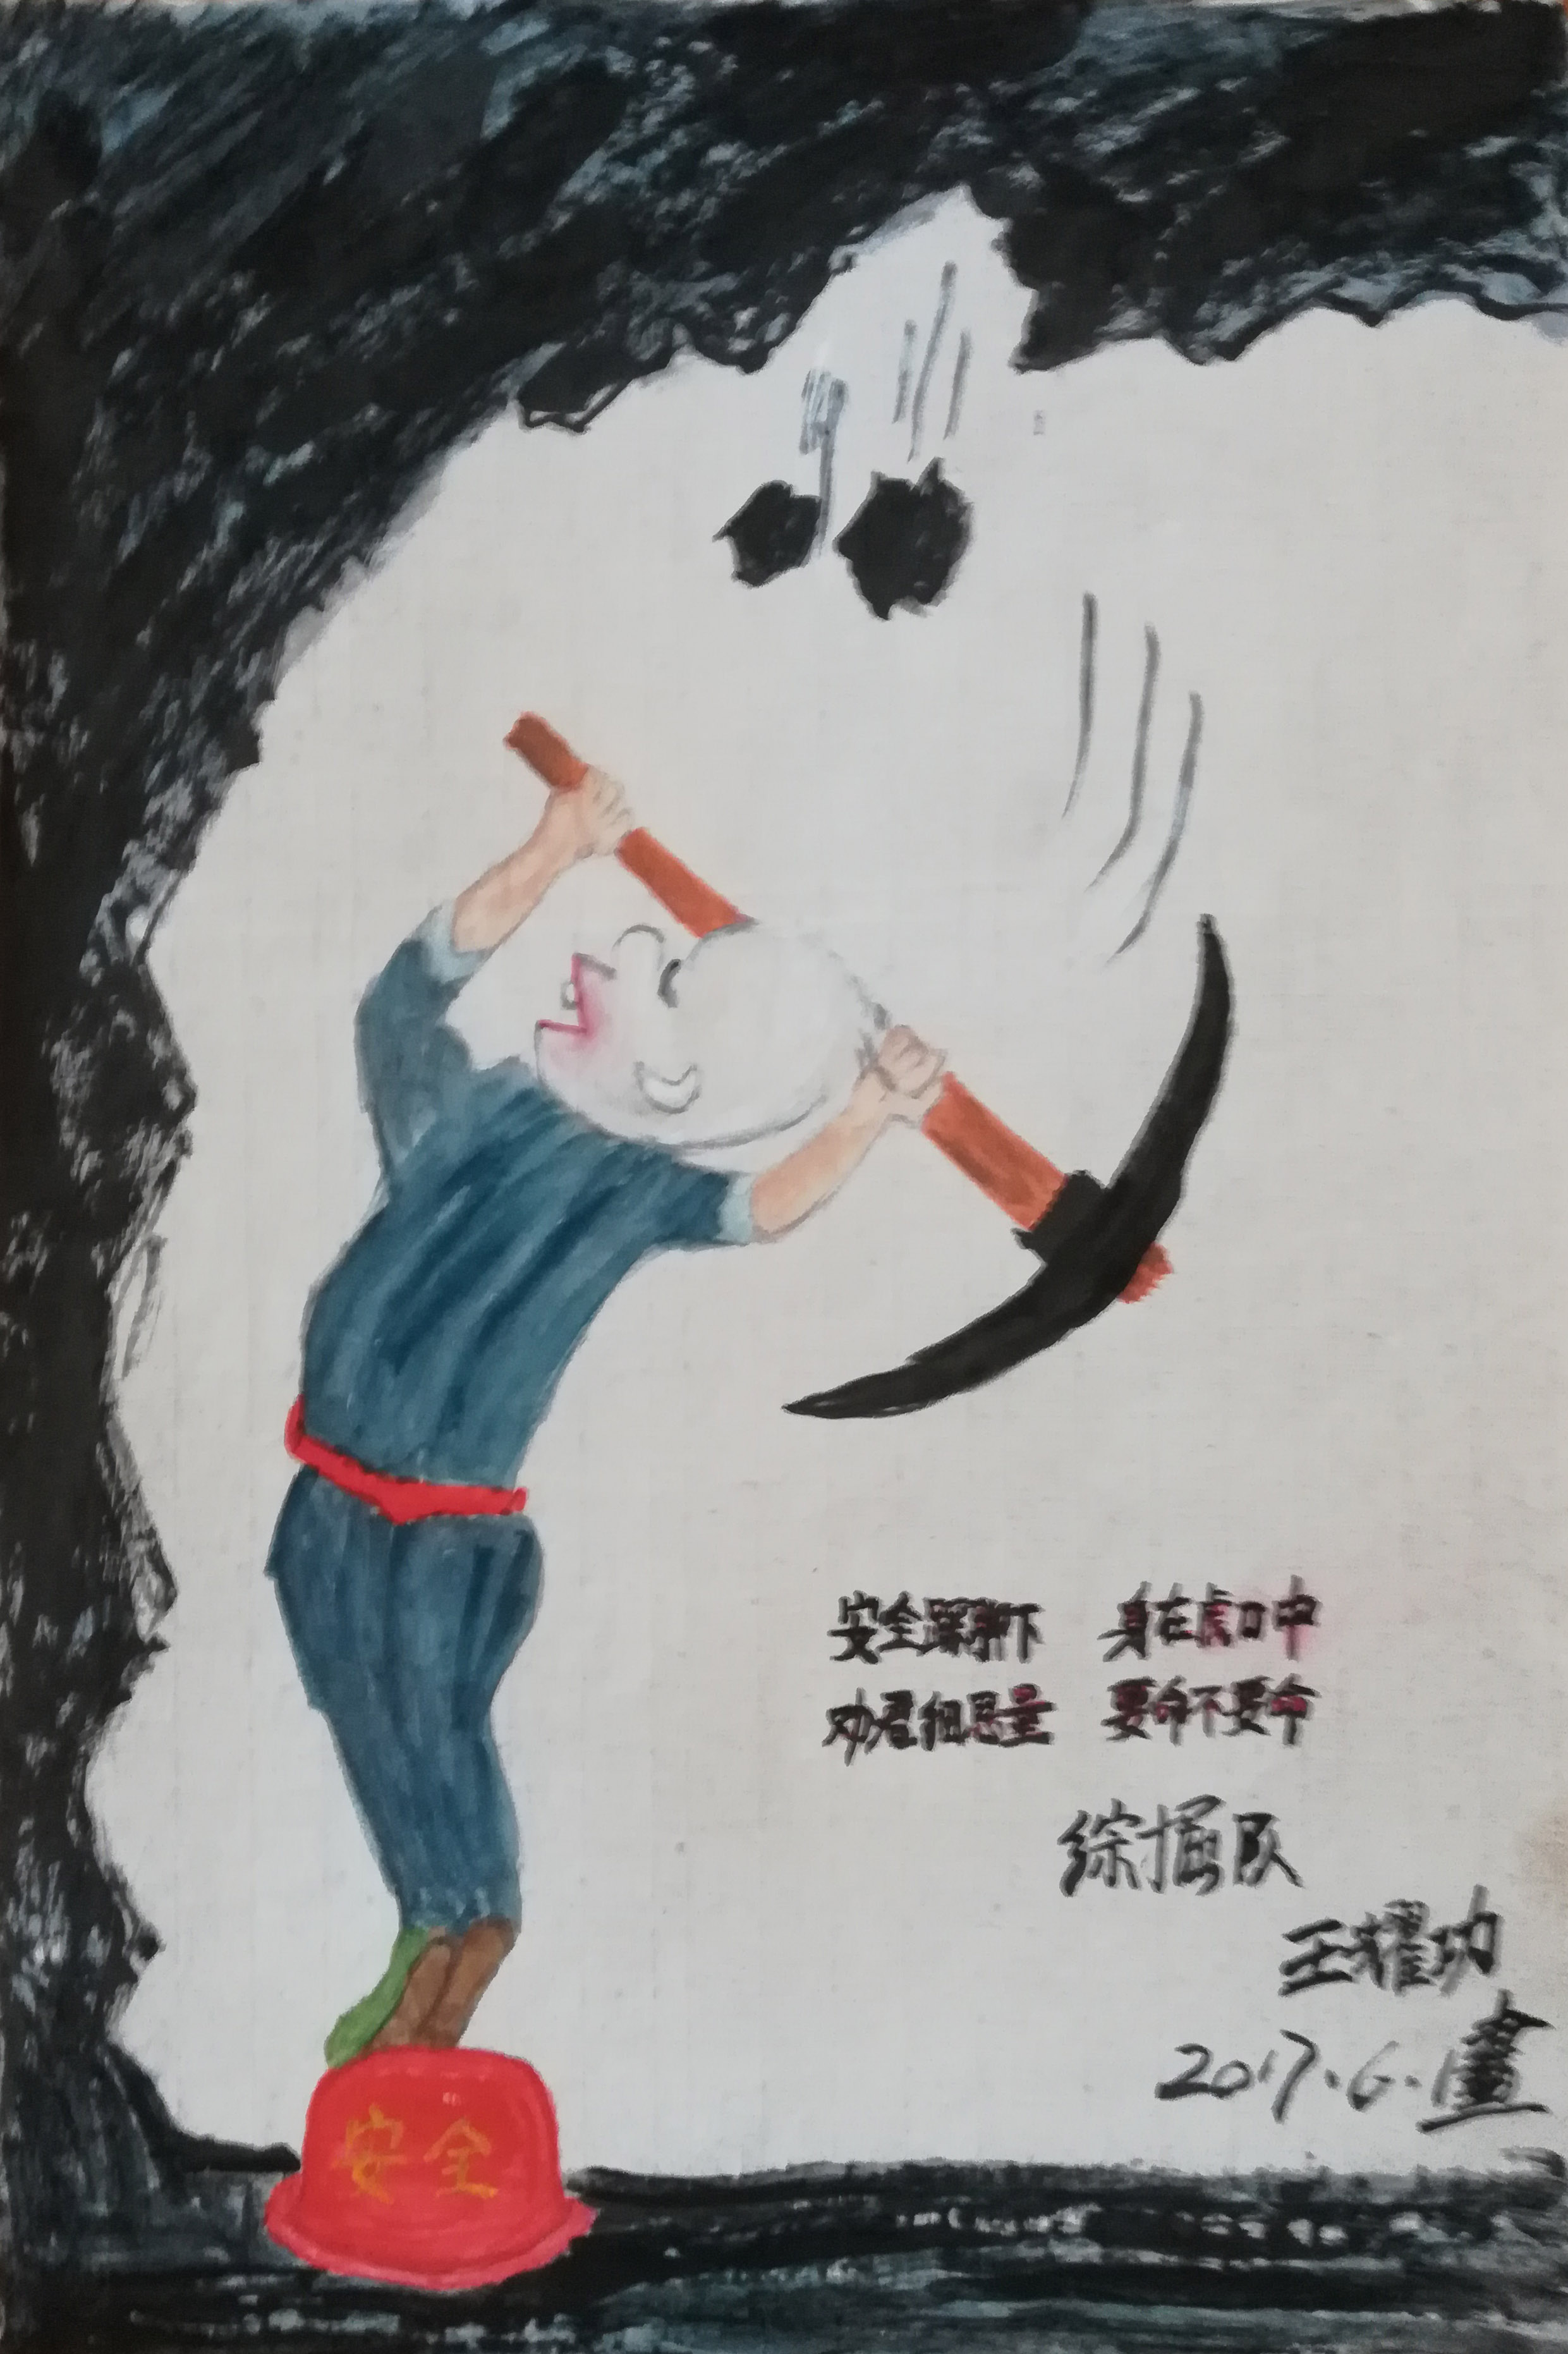 安全踩脚下 身在虎口中
劝君细思量 要命不要命
综掘队
王耀功
2017.6.画
安全